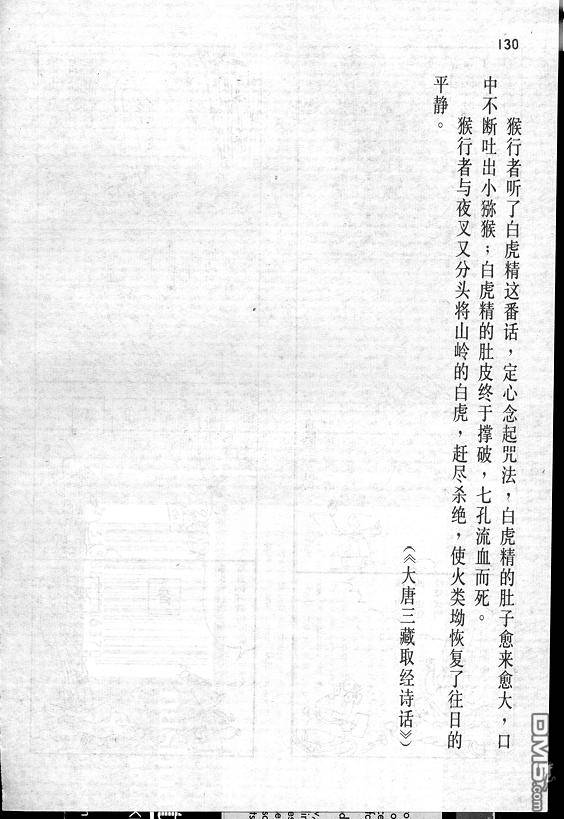 130
猴行者听了白虎精这番话，定心念起咒法，白虎精的肚子愈来愈大，口
中不断吐出小猕猴；白虎精的肚皮终于撑破，七孔流血而死。
猴行者与夜叉又分头将山岭的白虎，赶尽杀绝，使火类坳恢复了往日的
平静。
（《大唐三藏取经诗话》）
DM5.com